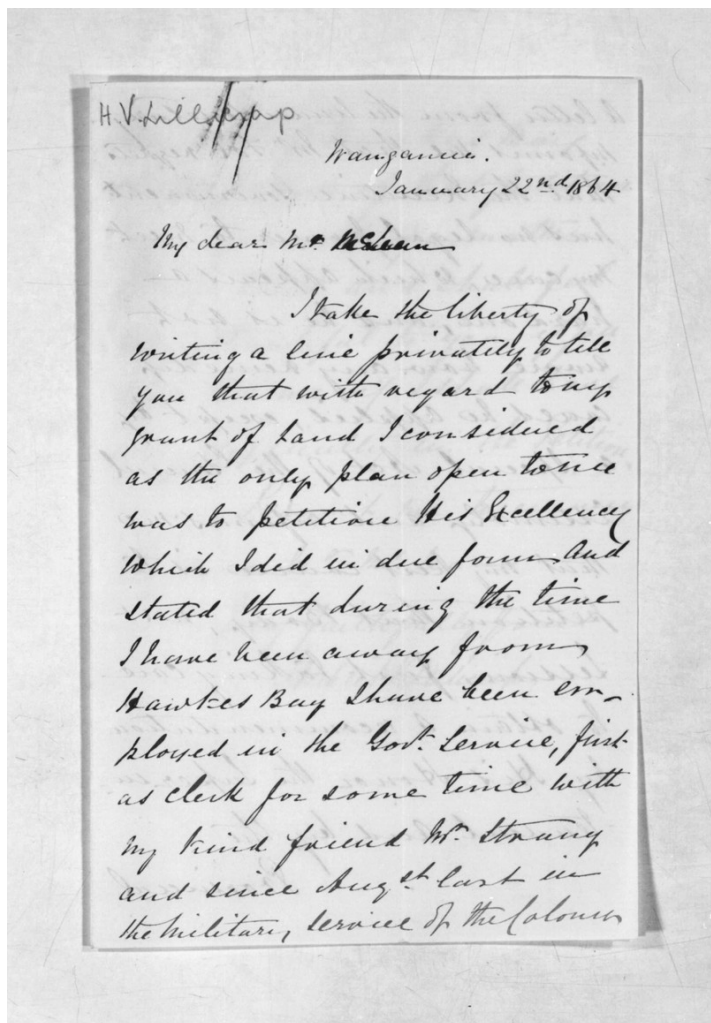 H. V. Lillicrap
Wanganui.
January 22nd. 1864
My dear Mr. McLean
I take the liberty of
writing a line privately to tell
you that with regard to my
grant of Land I considered
as the only plan open to me
was to petition His Excellency
which I did in due form and
stated that during the time
I have been away from
Hawkes Bay I have been em-
ployed in the Govt. Service, first
as clerk for some time with
my kind friend Mr. Strang
and since Augst. last in
the Military service of the Colony